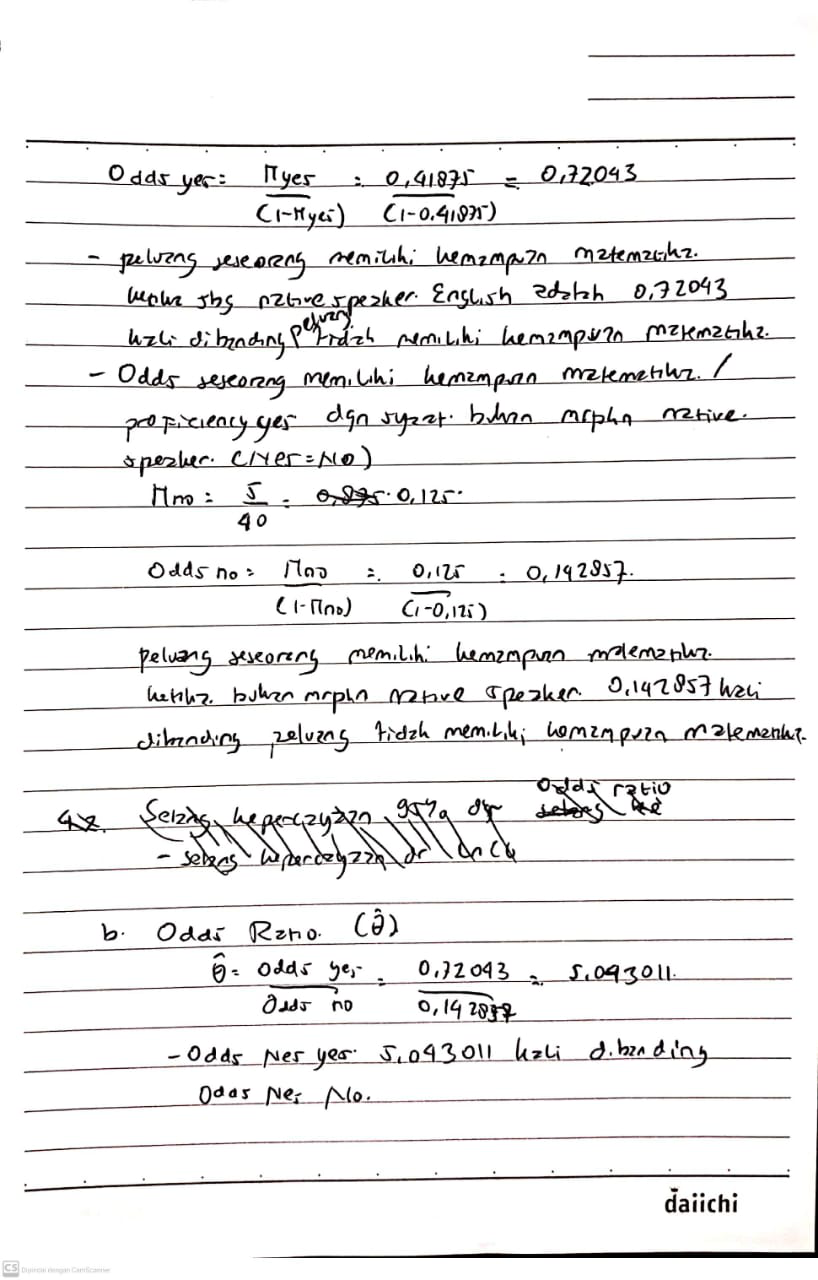 Odds yes = Πyes = 0,41875 = 0,72043
(1-Πyes) (1-0.41875)
- peluang seseorang memiliki kemampuan matematika
ketika sbg native speaker English adalah 0,72043
kali dibanding peluang tidak memiliki kemampuan matematika.
- Odds seseorang memiliki kemampuan matematika /
proficiency yes dgn syarat bukan mrpkn native
speaker. (Nes = No)
Πno = 5 = 0,875 0,125
40
Odds no = Πno = 0,125 = 0,142857.
(1-Πno) (1-0,125)
peluang seseorang memiliki kemampuan matematika
ketika bukan mrpkn native speaker 0,142857 kali
dibanding peluang tidak memiliki kemampuan matematika.
Odds ratio
Selang kepercayaan 95%
- selang kepercayaan
b. Odds Ratio (θ̂)
θ̂ = Odds yes = 0,72043 = 5,043011.
Odds no 0,142857
- Odds Nes yes 5,043011 kali dibanding
Odds Nes No.
daiichi
CS Dipindai dengan CamScanner